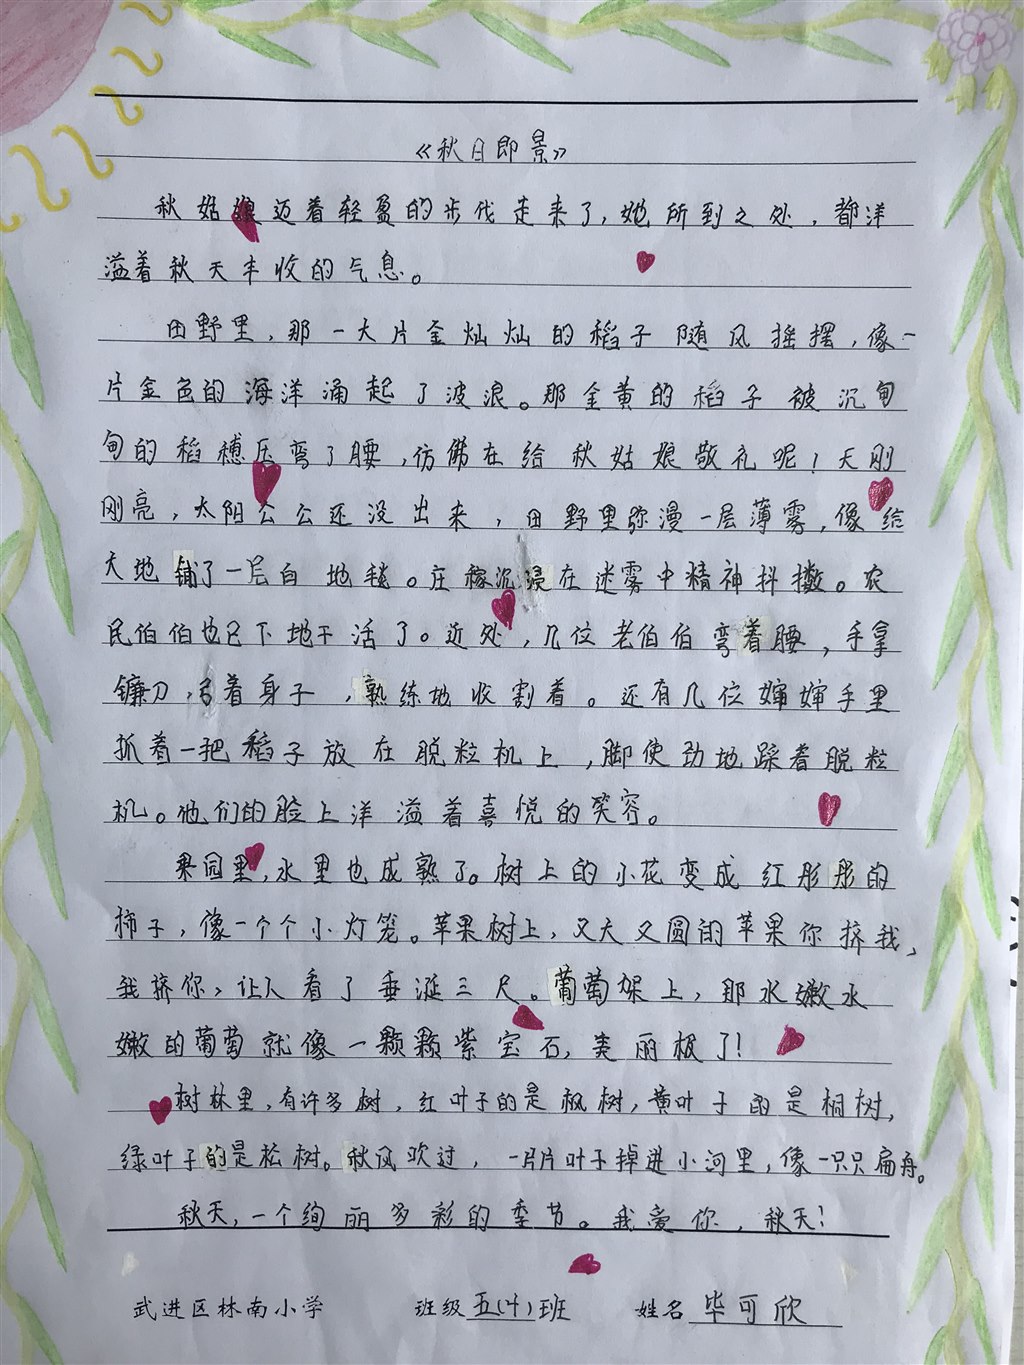 《秋日即景》
秋姑娘迈着轻盈的步伐走来了，她所到之处，都洋
溢着秋天丰收的气息。
田野里，那一大片金灿灿的稻子随风摇摆，像一
片金色的海洋涌起了波浪。那金黄的稻子被沉甸
甸的稻穗压弯了腰，仿佛在给秋姑娘敬礼呢！天刚
刚亮，太阳公公还没出来，田野里弥漫一层薄雾，像给
大地铺了一层白地毯。庄稼沉浸在迷雾中精神抖擞。农
民伯伯也已下地干活了。近处，几位老伯伯弯着腰，手拿
镰刀，弓着身子，熟练地收割着。还有几位婶婶手里
抓着一把稻子放在脱粒机上，脚使劲地踩着脱粒
机。他们的脸上洋溢着喜悦的笑容。
果园里，水里也成熟了。树上的小花变成红彤彤的
柿子，像一个个小灯笼。苹果树上，又大又圆的苹果你挤我，
我挤你，让人看了垂涎三尺。葡萄架上，那水嫩水
嫩的葡萄就像一颗颗紫宝石，美丽极了！
树林里，有许多树，红叶子的是枫树，黄叶子的是桐树，
绿叶子的是松树。秋风吹过，一片片叶子掉进小河里，像一只只扁舟。
秋天，一个绚丽多彩的季节。我爱你，秋天！
武进区林南小学 班级五(4)班 姓名毕可欣